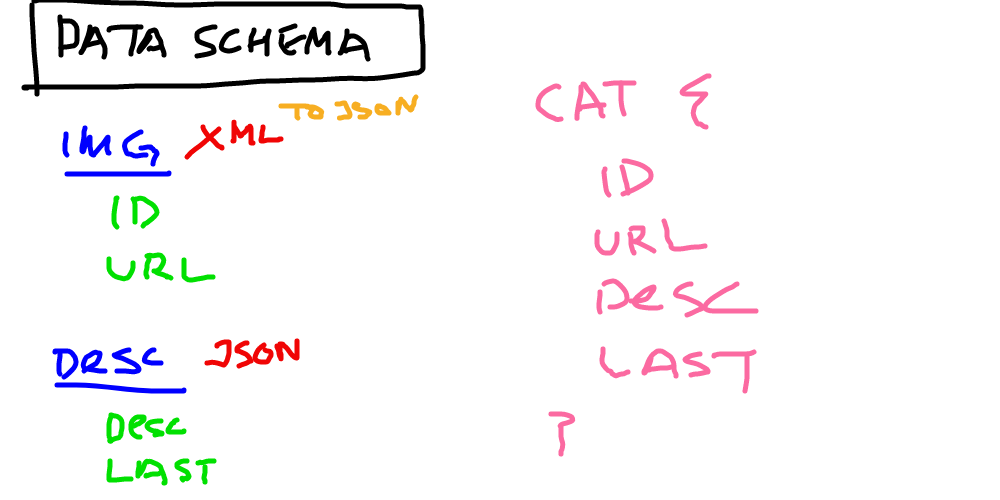 DATA SCHEMA
IMG XML TO JSON
ID
URL
DESC JSON
DESC
LAST
CAT {
ID
URL
DESC
LAST
}